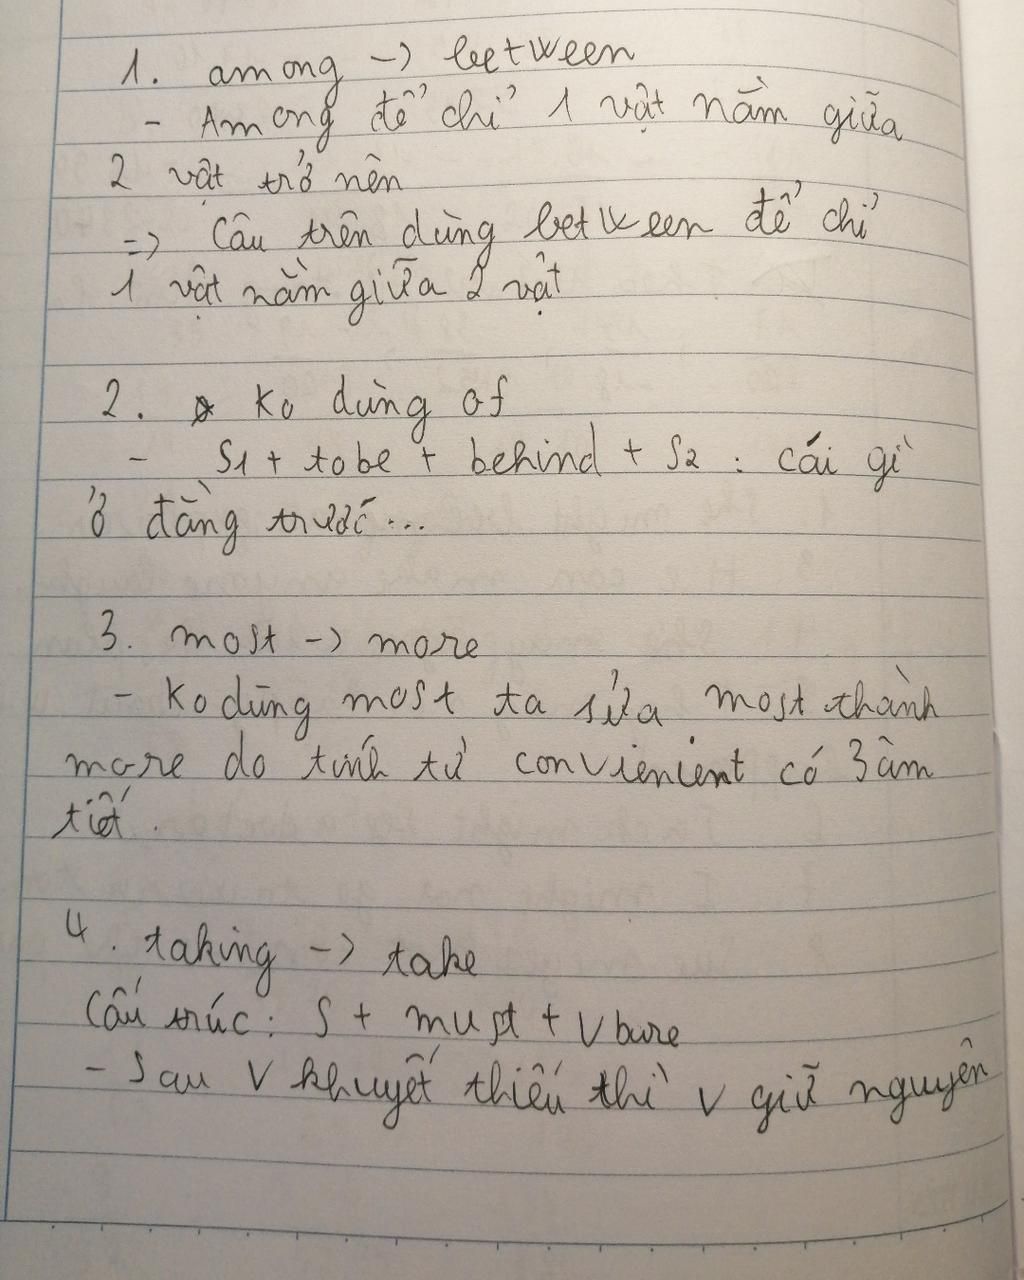 1. among -> between
- Among để chỉ 1 vật nằm giữa
2 vật trở nên
=> Câu trên dùng between để chỉ
1 vật nằm giữa 2 vật
2. Ko dùng of
- S1 + tobe + behind + S2 : cái gì
ở đằng trước...
3. most -> more
- Ko dùng most ta sửa most thành
more do tính từ convienient có 3 âm
tiết.
4. taking -> take
Cấu trúc: S + must + V bare
- Sau V khuyết thiếu thì V giữ nguyên